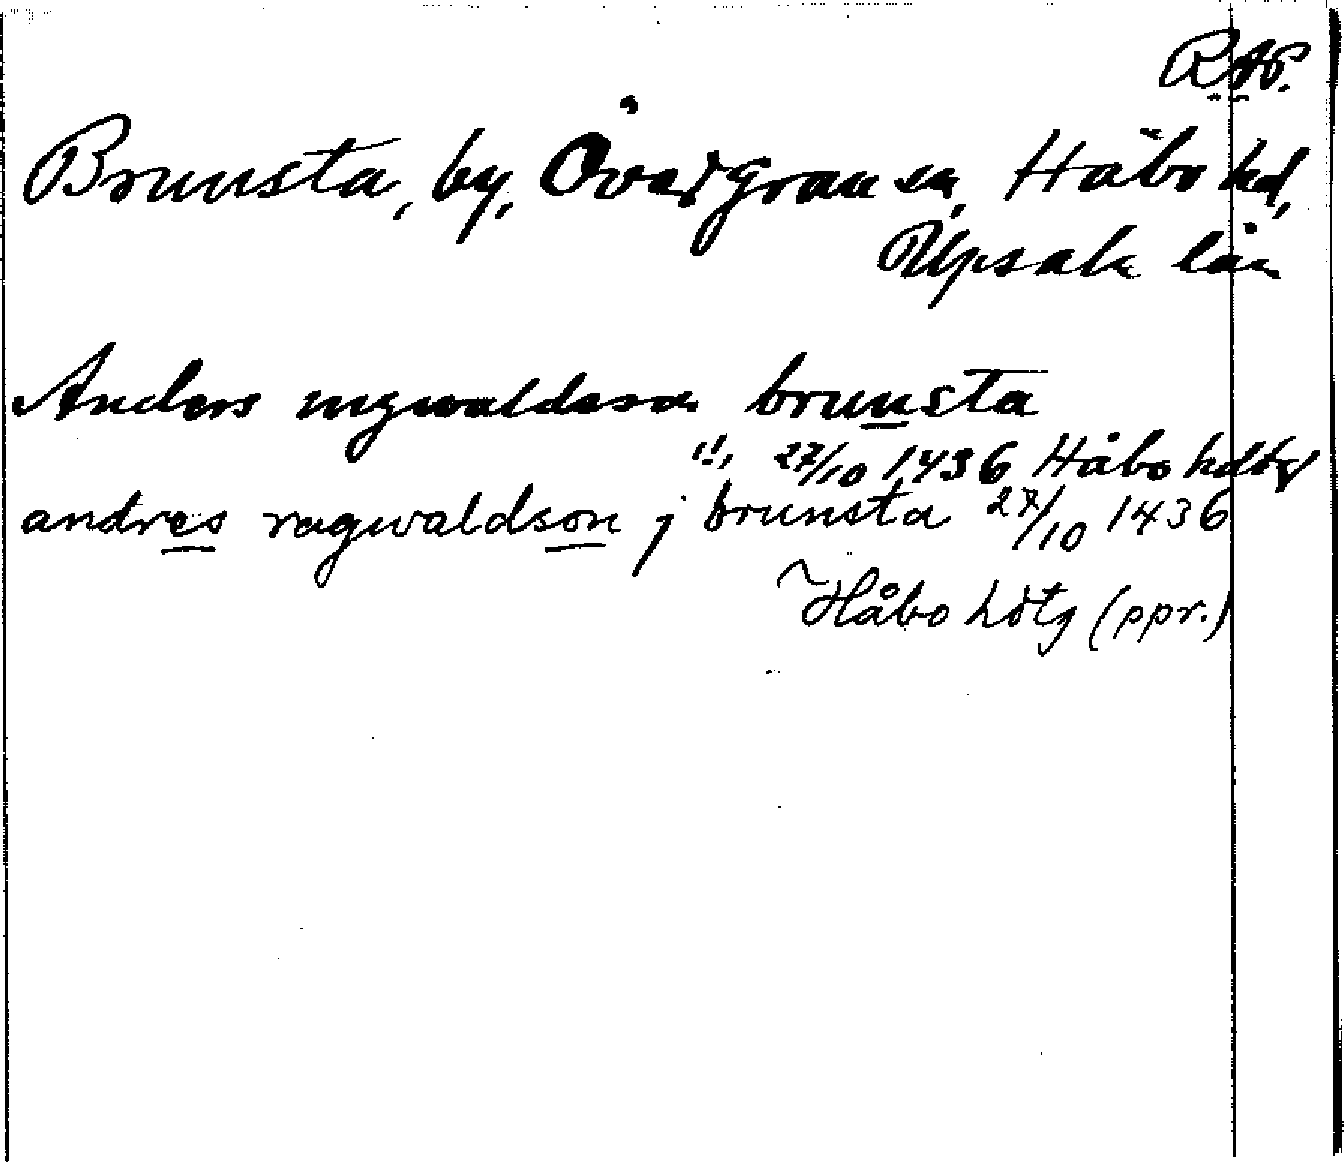 RAP.
Brunsta, by, Övergrans sn, Håbo hd,
Upsala län
Anders ingwaldsson brunsta
(!), 27/10 1436 Håbo hdtg
andres ragwaldson j brunsta 27/10 1436
Håbo hdtg (ppr.)